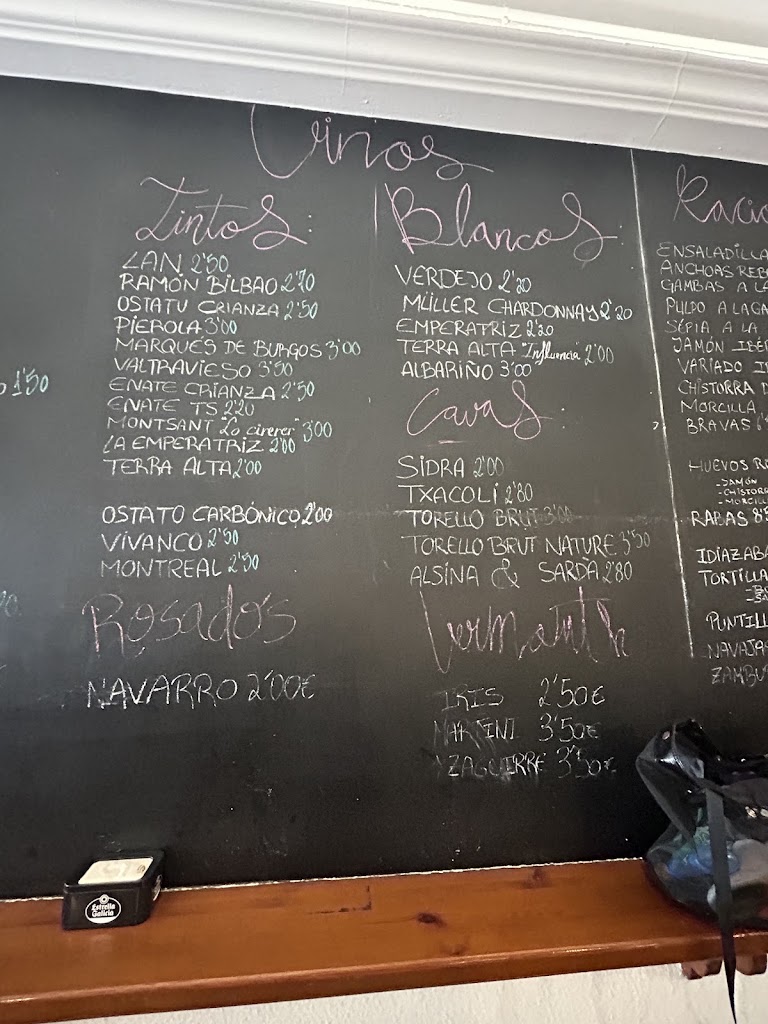 Vinos
Tintos:
LAN 2'50
RAMÓN BILBAO 2'70
OSTATU CRIANZA 2'50
PIEROLA 3'00
MARQUÉS DE BURGOS 3'00
VALTRAVIESO 3'50
ENATE CRIANZA 2'50
ENATE TS 2'20
MONTSANT "Lo cirerer" 3'00
LA EMPERATRIZ 2'00
TERRA ALTA 2'00
OSTATO CARBÓNICO 2'00
VIVANCO 2'50
MONTREAL 2'50
Rosados
NAVARRO 2'00€
Blancos:
VERDEJO 2'20
MÜLLER CHARDONNAY 2'20
EMPERATRIZ 2'20
TERRA ALTA "Influencia" 2'00
ALBARIÑO 3'00
Cavas:
SIDRA 2'00
TXACOLI 2'80
TORELLO BRUT 3'00
TORELLO BRUT NATURE 3'50
ALSINA & SARDA 2'80
Vermouth
IRIS 2'50€
MARTINI 3'50€
YZAGUIRRE 3'50€
Racio
ENSALADILLA
ANCHOAS REB
GAMBAS A LA
PULPO A LA GA
SEPIA A LA
JAMÓN IBÉ
VARIADO I
CHISTORRA D
MORCILLA
BRAVAS
HUEVOS RO
-JAMÓN
-CHISTORR
-MORCILL
RABAS 8'5
IDIAZABA
TORTILLA
PUNTILL
NAVAJAS
ZAMBU
1'50
Estrella
Galicia